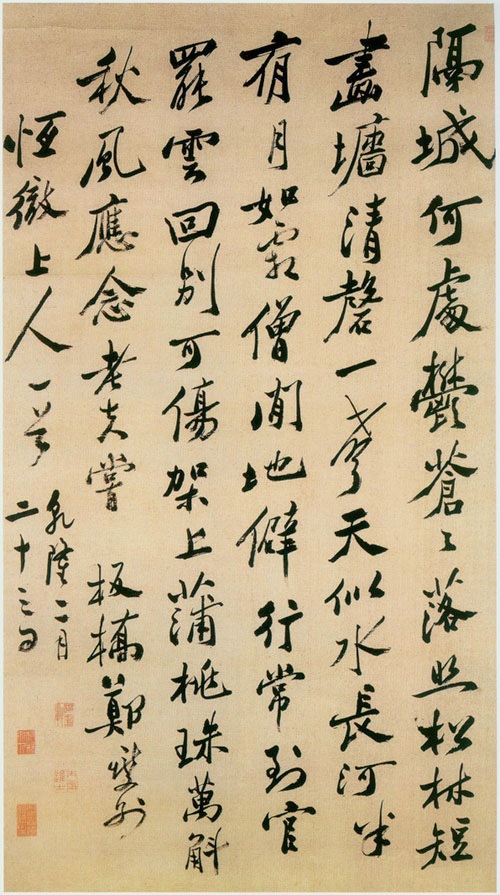 隔城何處鬱蒼々落照松林短
畫墻清磬一聲天似水長河半
夜月如霜僧閒地僻行常到官
罷雲回別可傷架上蒲桃珠萬斛
秋風應念老夫嘗 板橋鄭燮
恒徹上人一笑
乾隆二月
二十三日